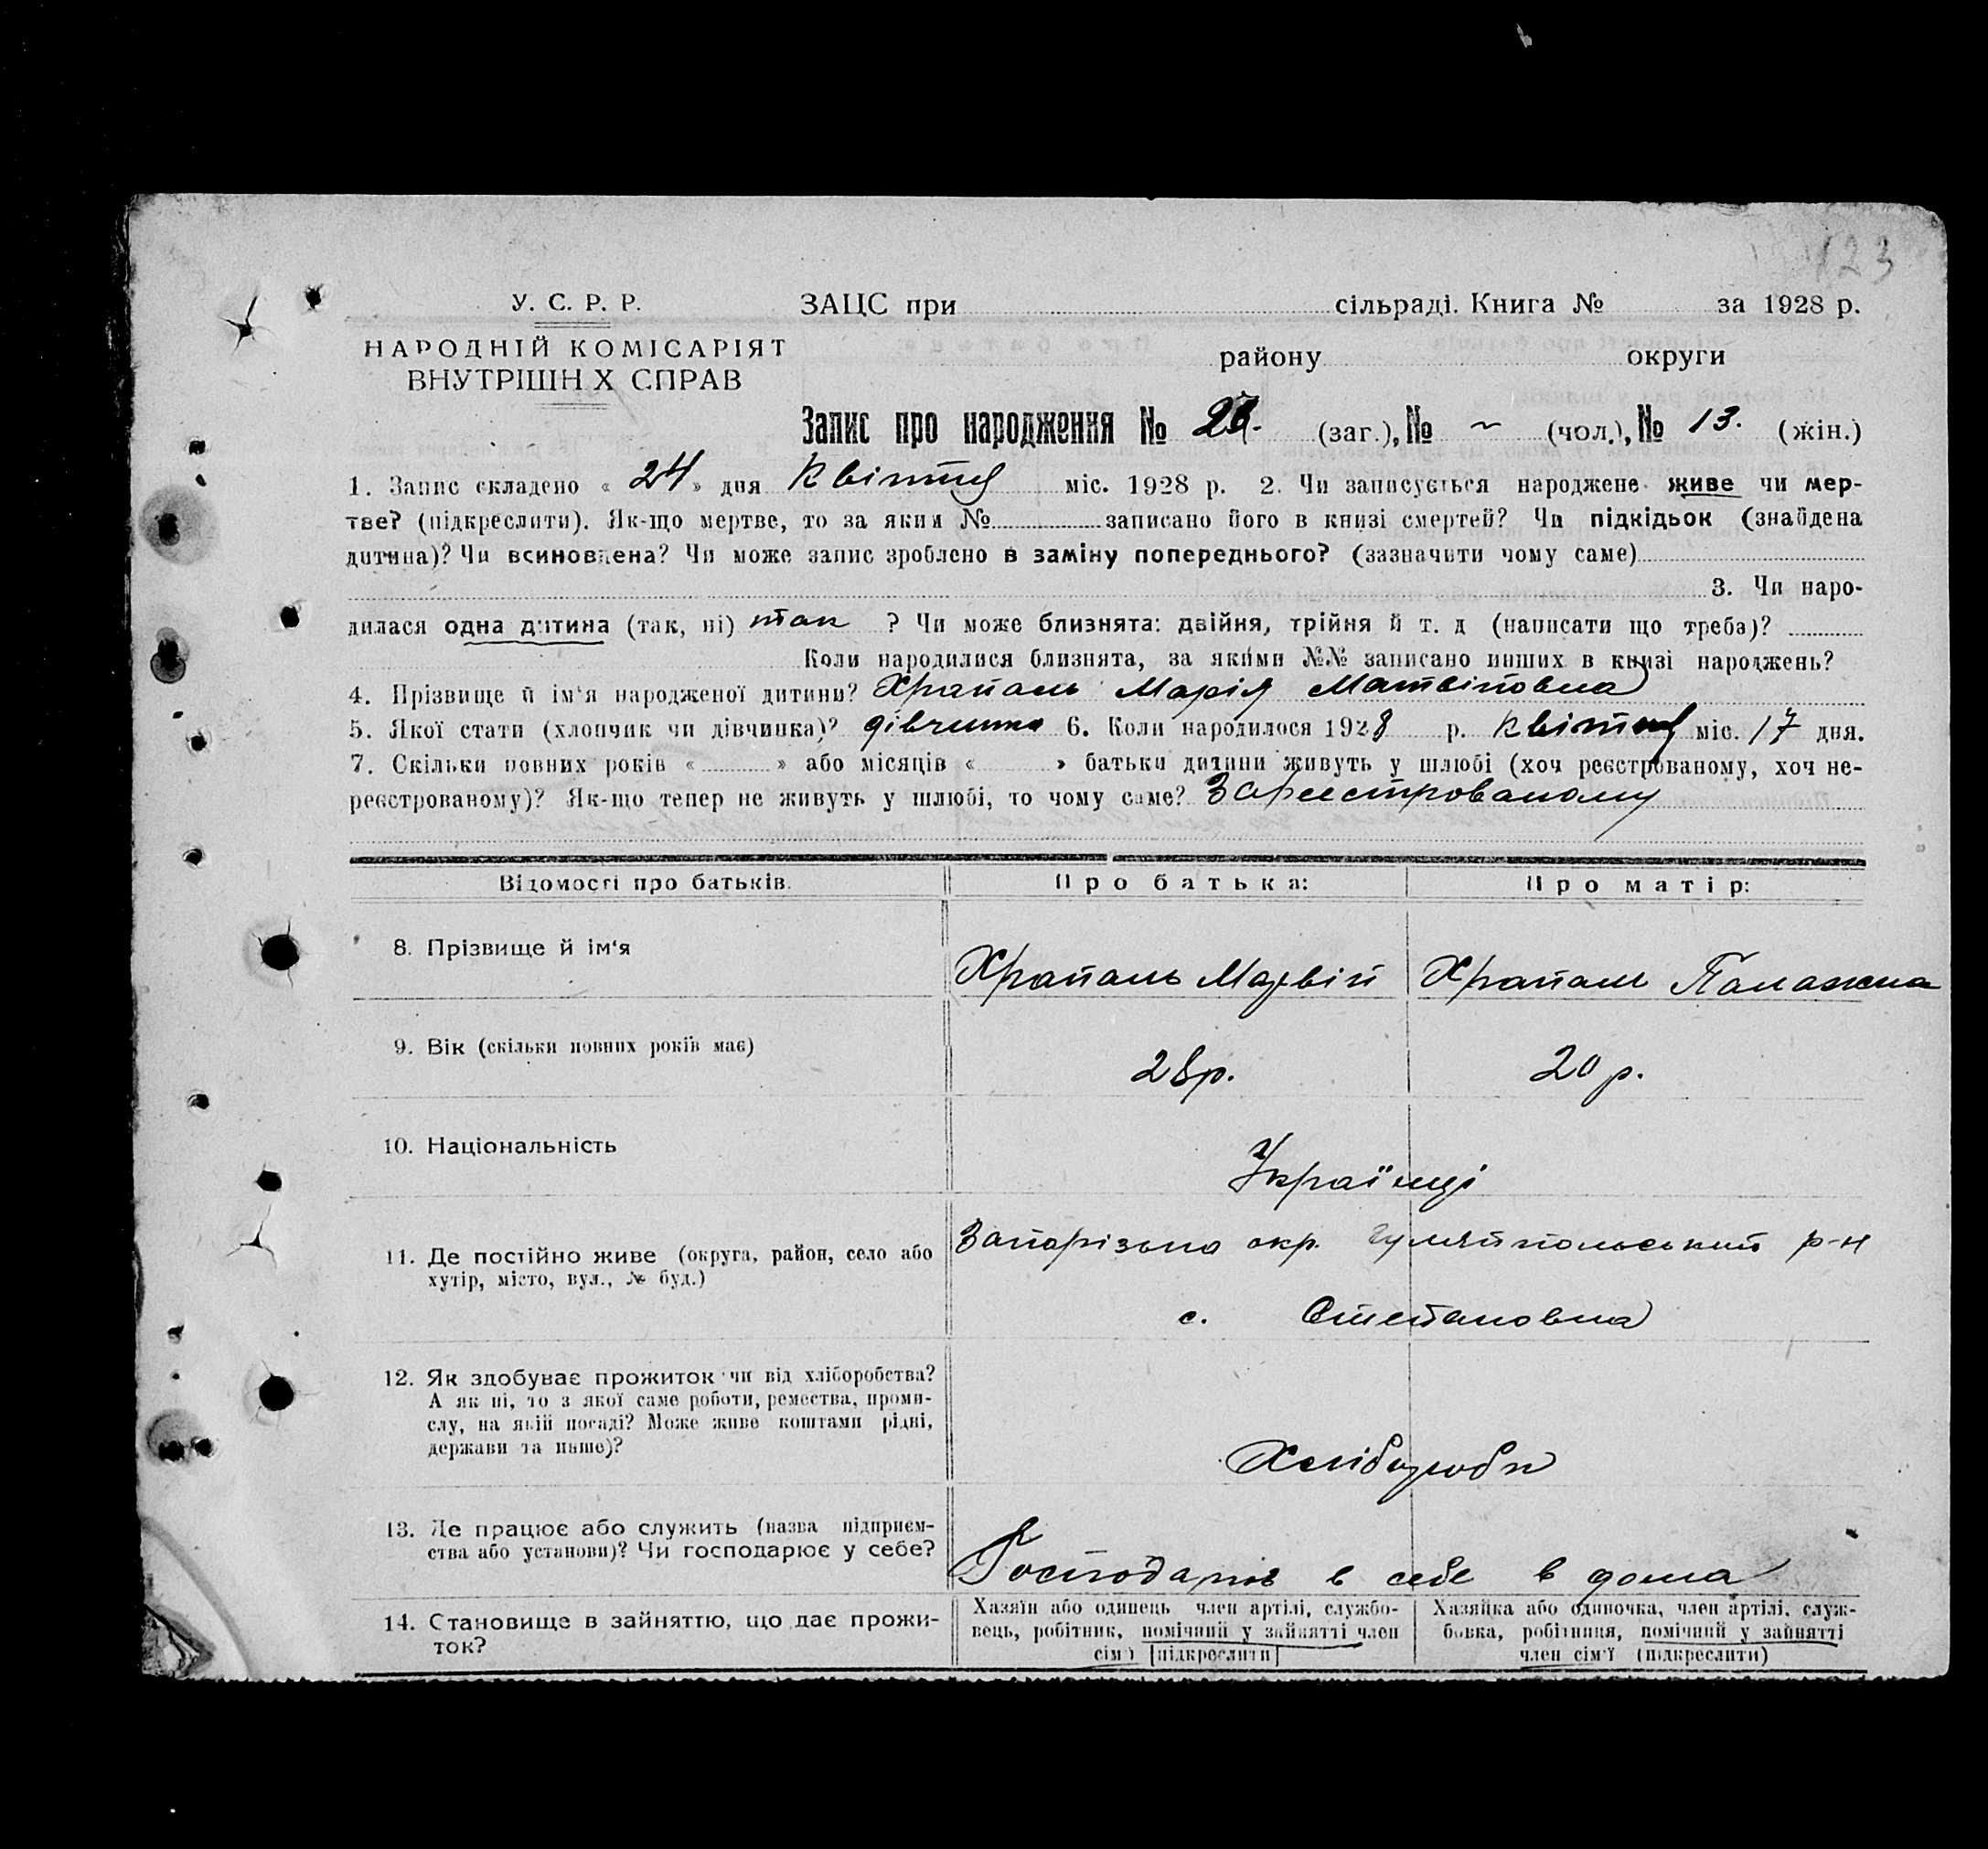 123
У. С. Р. Р.
НАРОДНІЙ КОМІСАРІЯТ
ВНУТРІШН Х СПРАВ
ЗАЦС при сільраді. Книга № за 1928 р.
району округи
Запис про народження № (заг.), № ~ (чол.), № 13. (жін.)
1. Запис складено « 24 » дня Квітня міс. 1928 р. 2. Чи записується народжене живе чи мер-
тве? (підкреслити). Як-що мертве, то за яким № записано його в книзі смертей? Чи підкідьок (знайдена
дитина)? Чи всиновлена? Чи може запис зроблено в заміну попереднього? (зазначити чому саме)
3. Чи наро-
дилася одна дитина (так, ні) так ? Чи може близнята: двійня, трійня й т. д (написати що треба)?
Коли народилися близнята, за якими №№ записано инших в книзі народжень?
4. Прізвище й ім‘я народженої дитини? Храпаль Марія Матвіїовна
5. Якої стати (хлопчик чи дівчинка)? дівчинка 6. Коли народилося 1928 р. Квітня міс. 17 дня.
7. Скільки повних років « » або місяців « » батьки дитини живуть у шлюбі (хоч реєстрованому, хоч не-
реєстрованому)? Як-що тепер не живуть у шлюбі, то чому саме? Зареєстрованому
Відомості про батьків. Про батька: Про матір:
8. Прізвище й ім‘я Храпаль Матвій Храпаль Палажка
9. Вік (скільки повних років має) 28р. 20 р.
10. Національність Українці
11. Де постійно живе (округа, район, село або
хутір, місто, вул., № буд.)
Запорізька окр. Гуляйпольський р-н
с. Степановка
12. Як здобуває прожиток чи від хліборобства?
А як ні, то з якої саме роботи, ремества, проми-
слу, на якій посаді? Може живе коштами рідні,
держави та инше)?
Хліборобн
13. Де працює або служить (назва підприєм-
ства або установи)? Чи господарює у себе?
в себе в дома
14. Становище в зайняттю, що дає прожи-
ток?
Хазяїн або одинець член артілі, службо-
вець, робітник, помічний у зайнятті член
сім'ї [підкреслити]
Хазяйка або одиночка, член артілі, служ-
бовка, робітниця, помічний у зайнятті
член сім'ї (підкреслити)